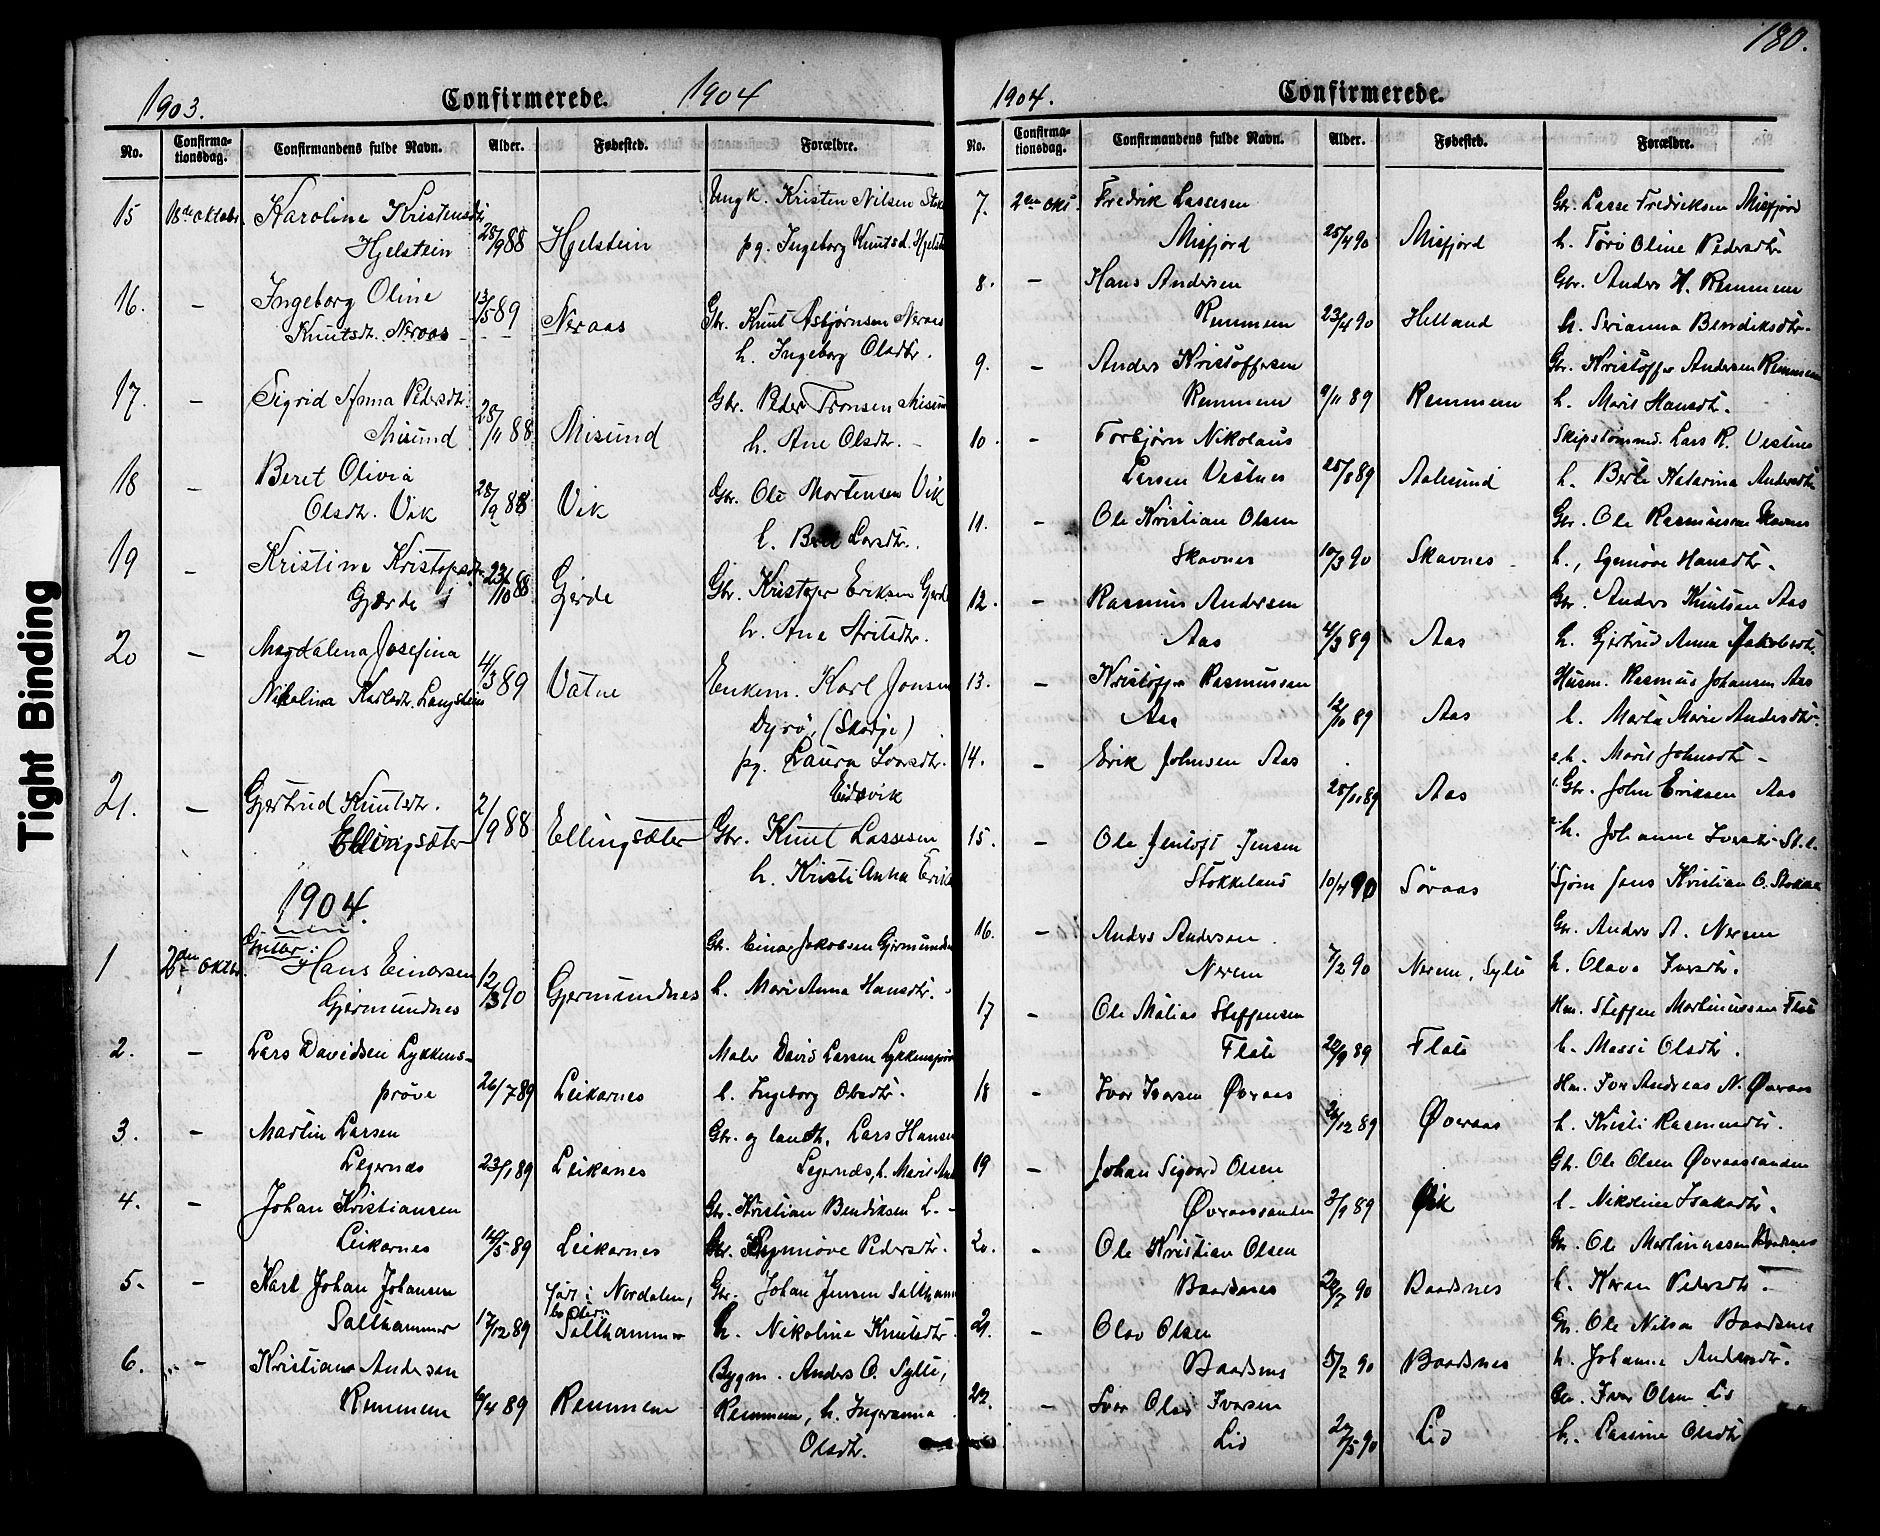 180.
1903.
Confirmerede.
1904
No.
Confirma-
tionsdag.
Confirmandens fulde Navn.
Alder.
Fødested.
Forældre.
15
18de oktobr.
Karoline Kristensdtr.
Hjelstein
28/9 88
Hjelstein
Ungk. Kristen Nilsen
pg. Ingeborg Knutsd.
16.
–
Ingeborg Oline
Knutsdtr. Neraas
13/5 89
Neraas
Gbr. Knut Asbjørnsen Neraas
h. Ingeborg Olsdtr.
17.
–
Sigrid Anna Pedersdtr.
Misund
28/11 88
Misund
Gbr. Peder Tronsen Misund
h. Ane Olsdtr.
18
–
Beret Olivia
Olsdtr. Vik
28/9 88
Vik
Gbr. Ole Mortensen Vik
h. Larsdtr.
19
–
Kristine
Gjærde
23/10 88
Gjerde
Gbr. Kristofer Eriksen
h. Ane
20
–
Magdalena Josefina
Nikolina Karlsdtr.
4/3 89
Vatne
Enkem. Karl Jonsen
Dyrø, (Skodje)
pg. Laura Ivarsdtr.
Eidsvik
21.
–
Gjertrud Knutsdtr.
Ellingsæter
2/9 88
Ellingsæter
Gbr. Knut Lassesen
h. Kristi Anna
1904.
Gutter:
1
2den oktbr.
Hans Einarsen
Gjermundnes
12/3 90
Gjermundnes
Gb. Einar Jakobsen
h. Mari Anna Hansdtr.
2.
–
Lars Davidsen Lykkens-
prøve
26/7 89
Leikarnes
Maler David Larsen
h. Ingeborg Olsdtr.
3.
–
Martin Larsen
Legernæs
23/1 89
Leikanes
Gbr. og landh. Lars Hansen
Legernæs, h. Marit
4.
–
Johan Kristiansen
Leikarnes
/5 89
Leikarnes
Gbr. Kristian Bendiksen L.
Synnøve Pedersdtr.
5.
–
Karl Johan Johansen
Salthammer
17/12 89
i Nordalen,
Salthammer
Gbr. Johan Jensen
h. Nikoline Knutsdtr.
6.
–
Kristian Andersen
Remmem
/4 89
Remmem
Bygm. Anders O. Sylte,
Remmem, h. Ingeranna
Olsdtr.
1904.
Confirmerede.
No.
Confirma-
tionsdag.
Confirmandens fulde Navn.
Alder.
Fødested.
Forældre.
7.
2den okt.
Fredrik Lassesen
Misfjord
25/4 90
Misfjord
Gbr. Lasse Fredriksen Misfjord
h. Oline Pedersdtr
8.
–
Hans Andersen
Remmem
23/4 90
Helland
Gbr. Anders H. Remmem
h. Serianna Bendiksdtr.
9.
–
Anders Kristoffersen
Remmem
9/11 89
Remmem
Gbr. Kristoffer Andersen Remmem
h. Marit Hansdtr.
10.
–
Torbjørn Nikolaus
Larsen Vestnes
25/8 89
Aalesund
Skipstømmd. Lars R. Vestnes
h. Berte Katarina Andersdtr
11.
–
Ole Kristian Olsen
Skavnes
10/3 90
Skavnes
Gbr. Ole Rasmussen Skavnes
h., Synnøve Hansdtr.
12.
–
Rasmus Andersen
Aas
4/3 89
Aas
Gbr. Anders Knutsen Aas
h. Gjertrud Anna Jakobsdtr.
13.
–
Kristoffer Rasmussen
Aas
12/10 89
Aas
Husm. Rasmus Johansen Aas
h. Marta Marie Andersdtr.
14.
–
Erik Johnsen Aas
28/11 89
Aas
h. Marit Johnsdtr
Gbr. John Eriksen Aas
15.
–
Ole Jentoft Jensen
Stokkeland
10/4 90
Søraas
h. Johanne
Jens Kristian O.
16.
–
Anders Andersen
Nerem
7/2 90
Nerem, Sylte
Gbr. Anders A. Nerem
h. Olava Ivarsdtr.
17
–
Ole Matias Steffensen
Flate
20/9 89
Flate
Hm. Steffen Martinussen Flate
h. Massi Olsdtr.
18
–
Ivar Ivarsen Øveraas
/12 89
Øveraas
Hm. Ivar Andreas N. Øveraas
h. Kristi Rasmusdtr.
19
–
Johan Sigvard Olsen
Øveraassanden
3/9 89
Gb. Ole Olsen Øveraassanden
h. Nikoline Isaksdtr.
20.
–
Ole Kristian Olsen
Baardsnes
20/7 90
Baardsnes
Gbr. Ole Martinussen Baardsnes
h. Karen Pedersdtr.
21.
–
Olav Olsen
Baardsnes
5/2 90
Baardsnes
Gb. Ole Nilsen Baardsnes
h. Johanne Andersdtr.
22.
–
Ivar Olai Ivarsen
Lid
/5 90
Lid
Gbr. Ivar Olsen Lid
h. Olsdtr
Tight Binding